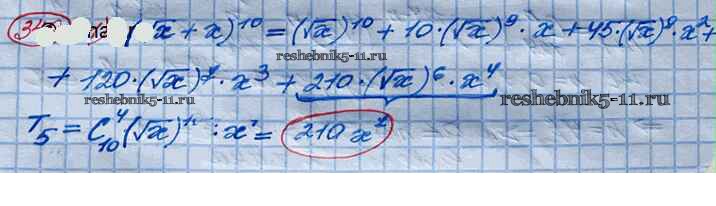 (√x + x)¹⁰ = (√x)¹⁰ + 10·(√x)⁹·x + 45·(√x)⁸·x² +
reshebnik5-11.ru
+ 120·(√x)⁷·x³ + 210·(√x)⁶·x⁴
reshebnik5-11.ru
reshebnik5-11.ru
T₅ = C₁₀⁴ (√x) : x = 210 x⁷
reshebnik5-11.ru